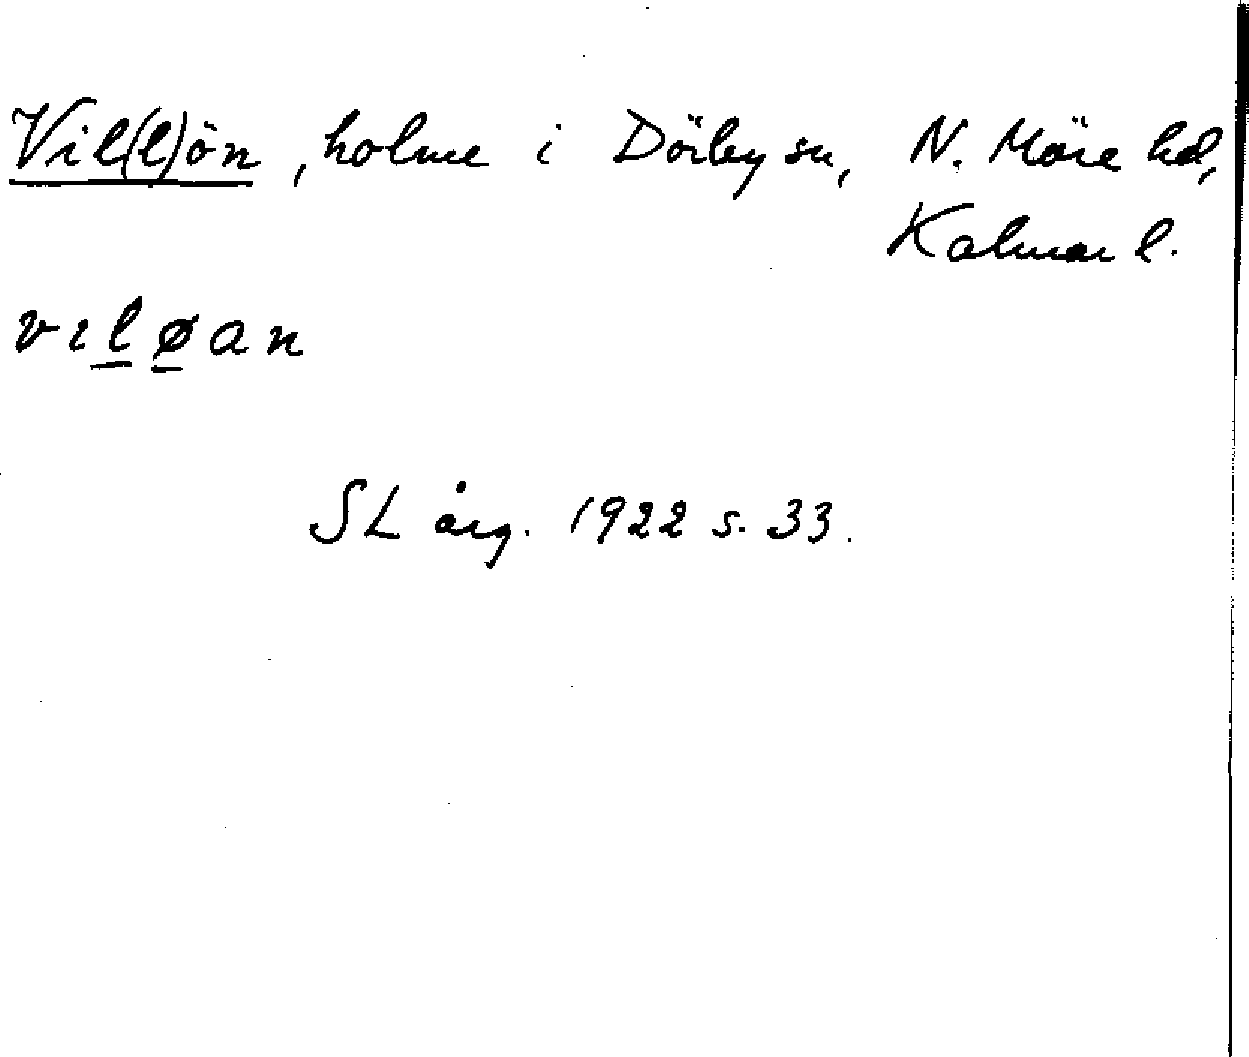 Vil(l)ön, holme i Dörby sn, N. Möre hd,
Kalmar l.
vıl̲ø̲an
SL årg. 1922 s. 33.